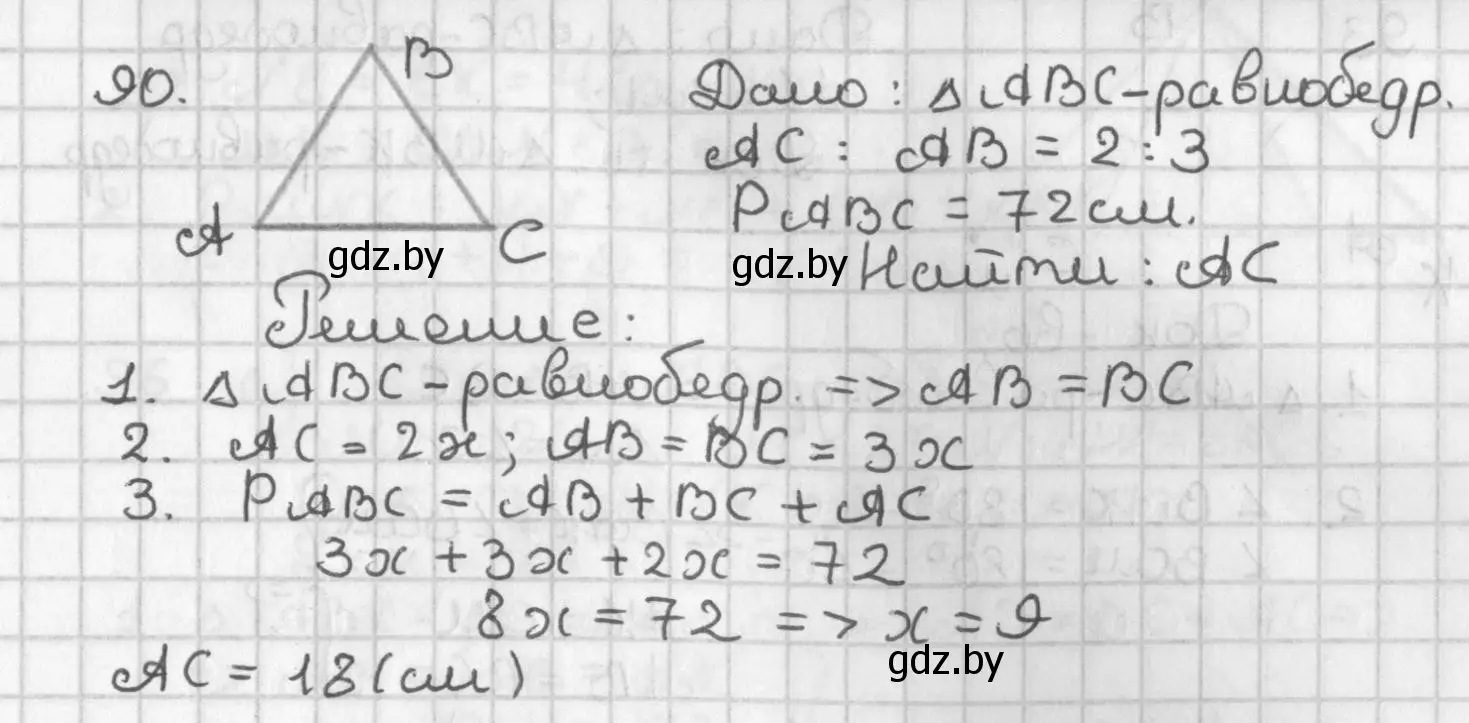 90.
B
A
C
Дано: △ABC-равнобедр.
AC : AB = 2:3
PABC = 72см.
Найти: AC
gdz.by
gdz.by
Решение:
1. △ABC-равнобедр. => AB = BC
2. AC = 2x; AB = BC = 3x
3. PABC = AB + BC + AC
3x + 3x + 2x = 72
8x = 72 => x = 9
gdz.by
AC = 18(см)